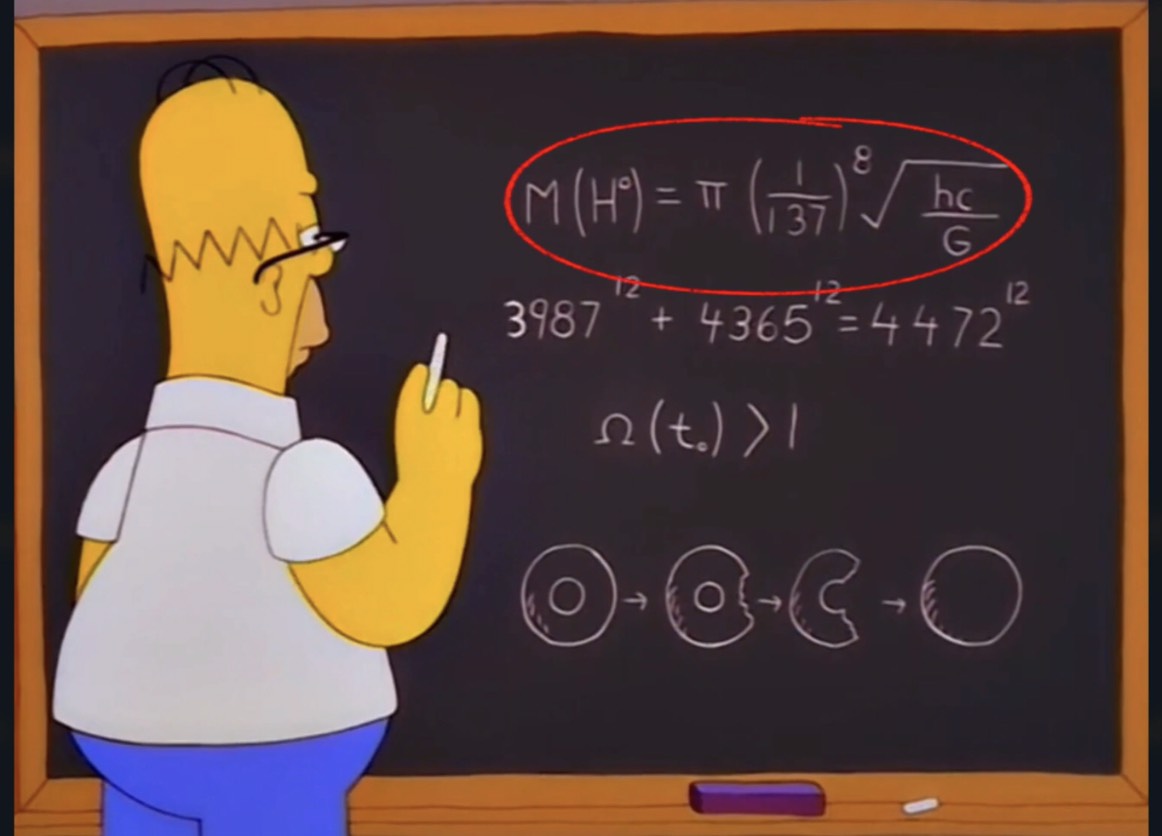 M(H°) = π (1/137)⁸ √(hc/G)
3987¹² + 4365¹² = 4472¹²
Ω(t₀) > 1